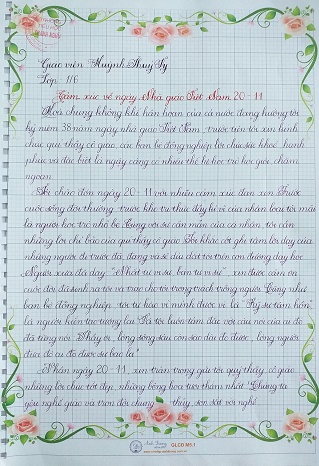 Giáo viên Huỳnh Thuý Sy
Lớp: 1/6
Cảm xúc về ngày Nhà giáo Việt Nam 20-11
Hoà chung không khí hân hoan của cả nước đang hướng tới
kỷ niệm 38 năm ngày nhà giáo Việt Nam, trước tiên tôi xin kính
chúc quý thầy cô giáo, các bạn bè đồng nghiệp lời chúc sức khoẻ, hạnh
phúc và đặc biệt là ngày càng có nhiều thế hệ học trò học giỏi, chăm
ngoan.
Tôi chào đón ngày 20-11 với nhiều cảm xúc đan xen. Trước
cuộc sống đời thường, trước khi tri thức đầy bí ẩn của nhân loại tôi mãi
là người học trò nhỏ bé. Cùng với sự cần mẫn của cá nhân, tôi cần
những lời chỉ bảo của quý thầy cô giáo. Tôi khắc cốt ghi tâm lời dạy của
những người đi trước đã, đang và sẽ dìu dắt tôi trên con đường dạy học.
Người xưa đã dạy "Nhất tự vi sư, bán tự vi sư" xin được cảm ơn
cuộc đời đã sinh ra tôi và trao cho tôi trọng trách trồng người. Cũng như
bạn bè đồng nghiệp, tôi tự hào vì mình được ví là "Kỹ sư tâm hồn",
là người kiến tạo tương lai. Và tôi luôn tâm đắc với câu nói của ai đó
đã từng nói: "Thầy ơi, lòng sông sâu con sào dài đo được, lòng người
đưa đò ai đo được sâu bao la".
Nhân ngày 20-11, xin trân trọng gửi tới quý thầy, cô giáo
những lời chúc tốt đẹp, những bông hoa tươi thắm nhất. Chúng ta
yêu nghề giáo và trọn đời chung thuỷ, son sắt với nghề.
GLCD M5.1